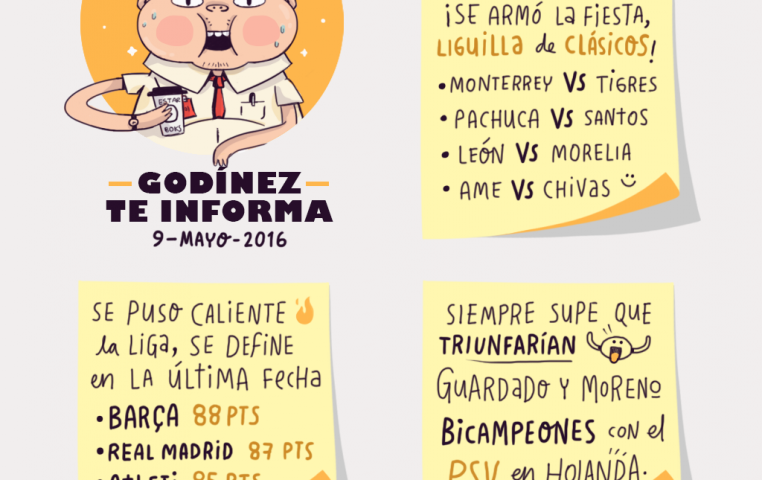 ESTAR
BOKS
GODÍNEZ
TE INFORMA
9-MAYO-2016
¡SE ARMÓ La FiESTA,
LIGUILLa de CLÁSICOS!
• MONTERREY VS TiGRES
• PACHUCA VS SANTOS
• LEÓN VS MORELIA
• AME VS CHiVaS
SE PUSO CALiENTE
la LiGa, SE DEFiNE
en LA ÚLTiMA FeCHa
• BARÇA 88 PTS
• REAL MADRiD 87 PTS
• ATLETI 85 PTS
SIEMPRE SUPE QUE
TRIUNFARÍAN
GUARDADO Y MORENO
BiCAMPEONES con el
PSV en HOLANDA.